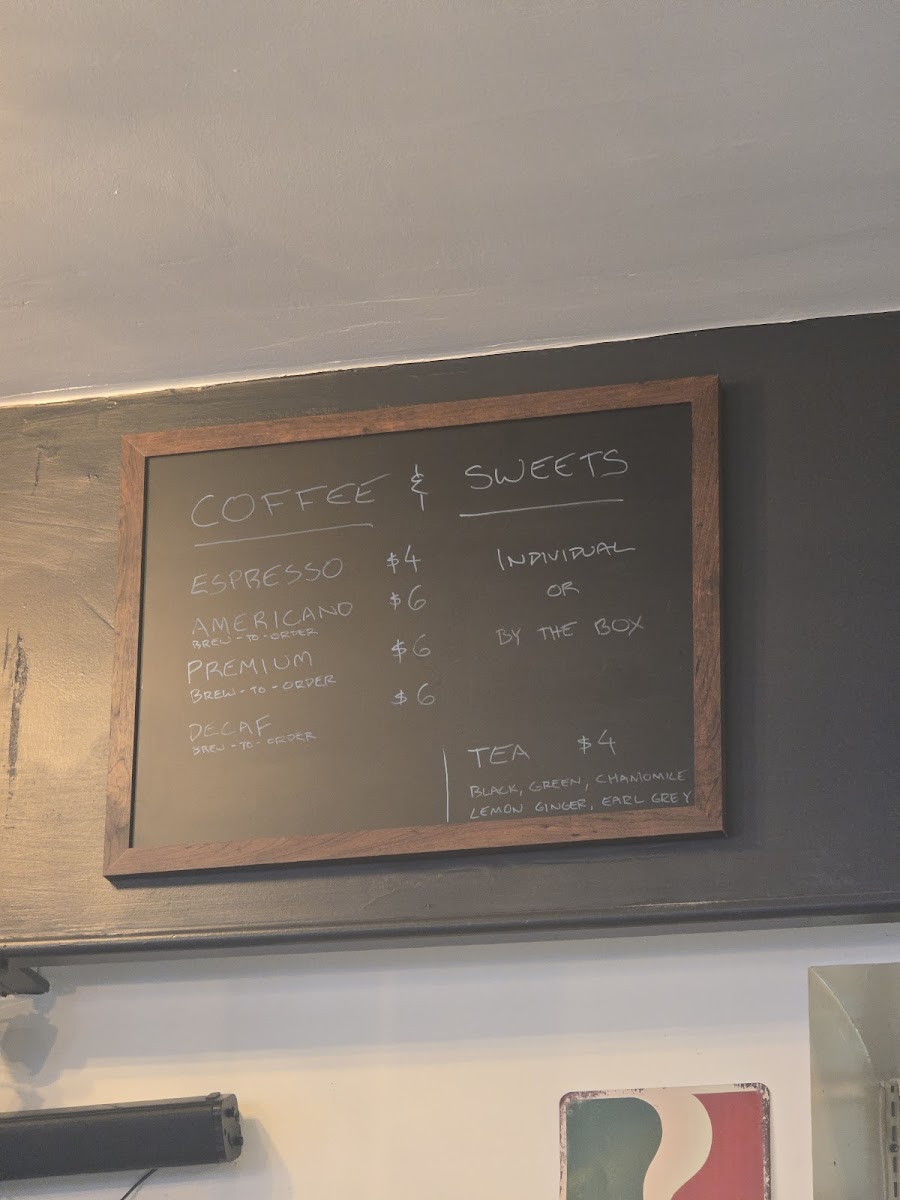 COFFEE & SWEETS
ESPRESSO $4
AMERICANO $6
BREW-TO-ORDER
PREMIUM $6
BREW-TO-ORDER
DECAF $6
BREW-TO-ORDER
INDIVIDUAL
OR
BY THE BOX
TEA $4
BLACK, GREEN, CHAMOMILE
LEMON GINGER, EARL GREY